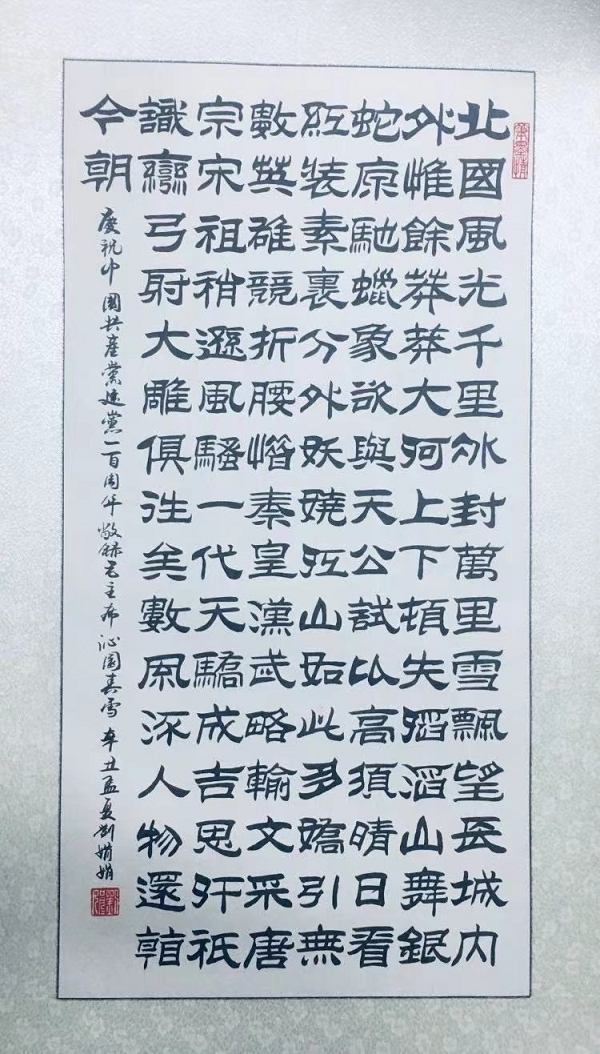 筆墨情
北國風光千里氷封萬里雪飄望長城内
外惟餘莽莽大河上下頓失滔滔山舞銀
蛇原馳蠟象欲與天公試比高須晴日看
紅装素裹分外妖嬈江山如此多嬌引無
數英雄競折腰惜秦皇漢武略輸文采唐
宗宋祖稍遜風騷一代天驕成吉思汗衹
識彎弓射大雕俱往矣數風流人物還看
今朝
慶祝中國共產黨建黨一百周年敬録毛主席沁園春雪 辛丑孟夏劉娟娟